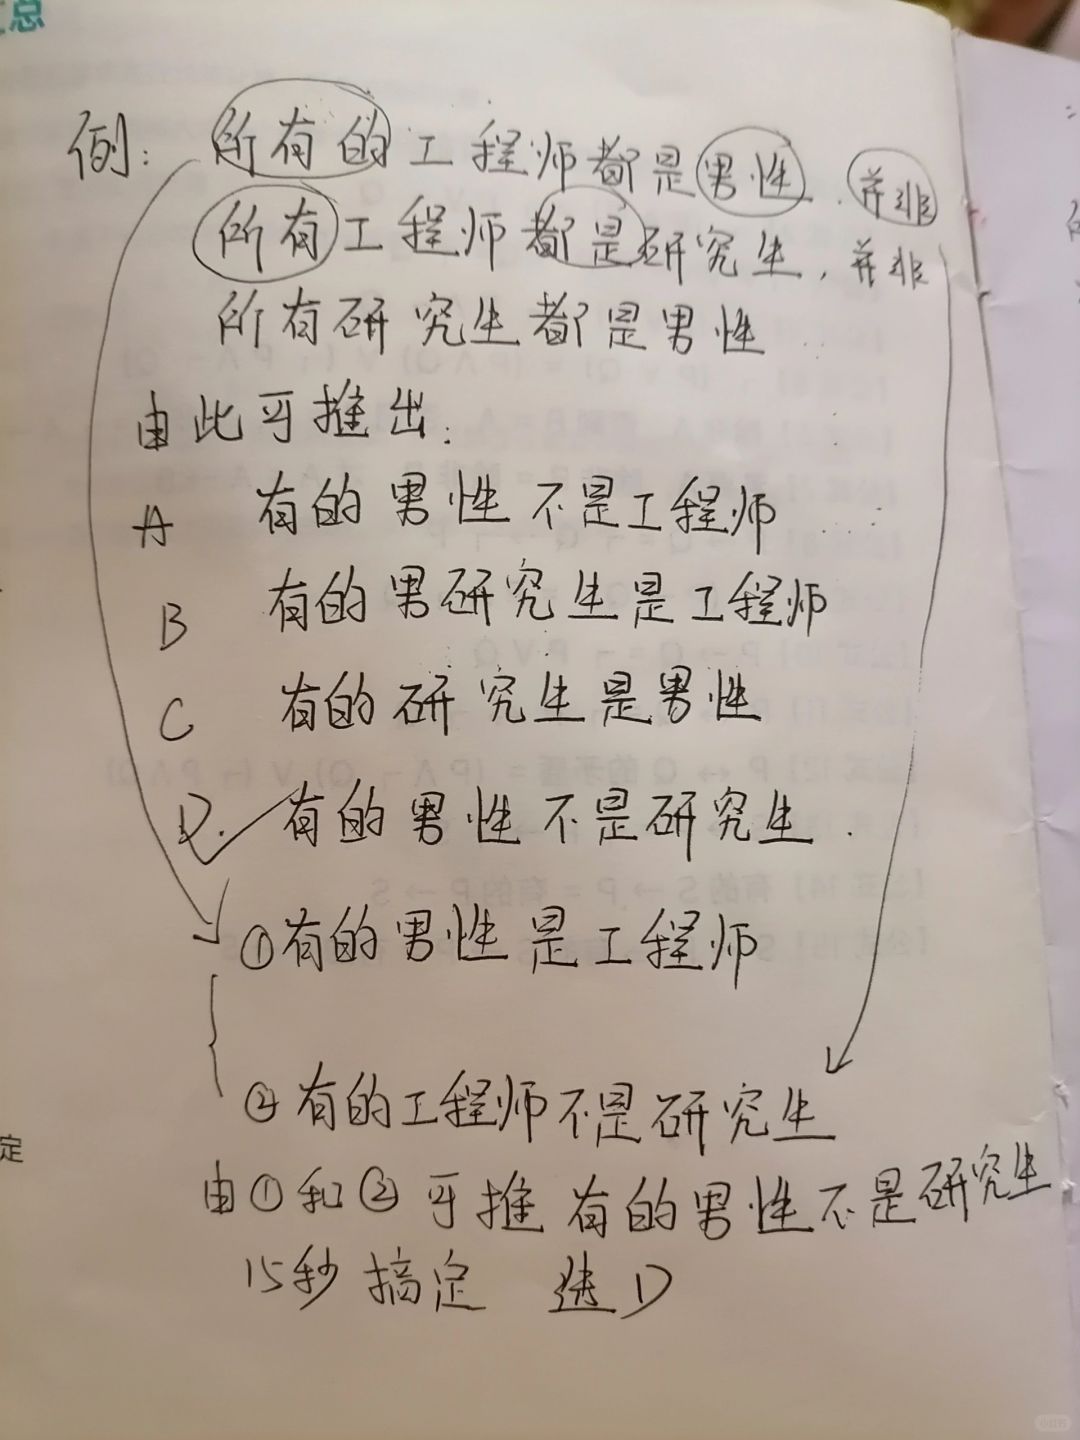 总
例：所有的工程师都是男性．并非
所有工程师都是研究生，并非
所有研究生都是男性
由此可推出：
A 有的男性不是工程师
B 有的男研究生是工程师
C 有的研究生是男性
D. 有的男性不是研究生．
①有的男性是工程师
②有的工程师不是研究生
定
由①和②可推有的男性不是研究生
15秒搞定 选D
小红书